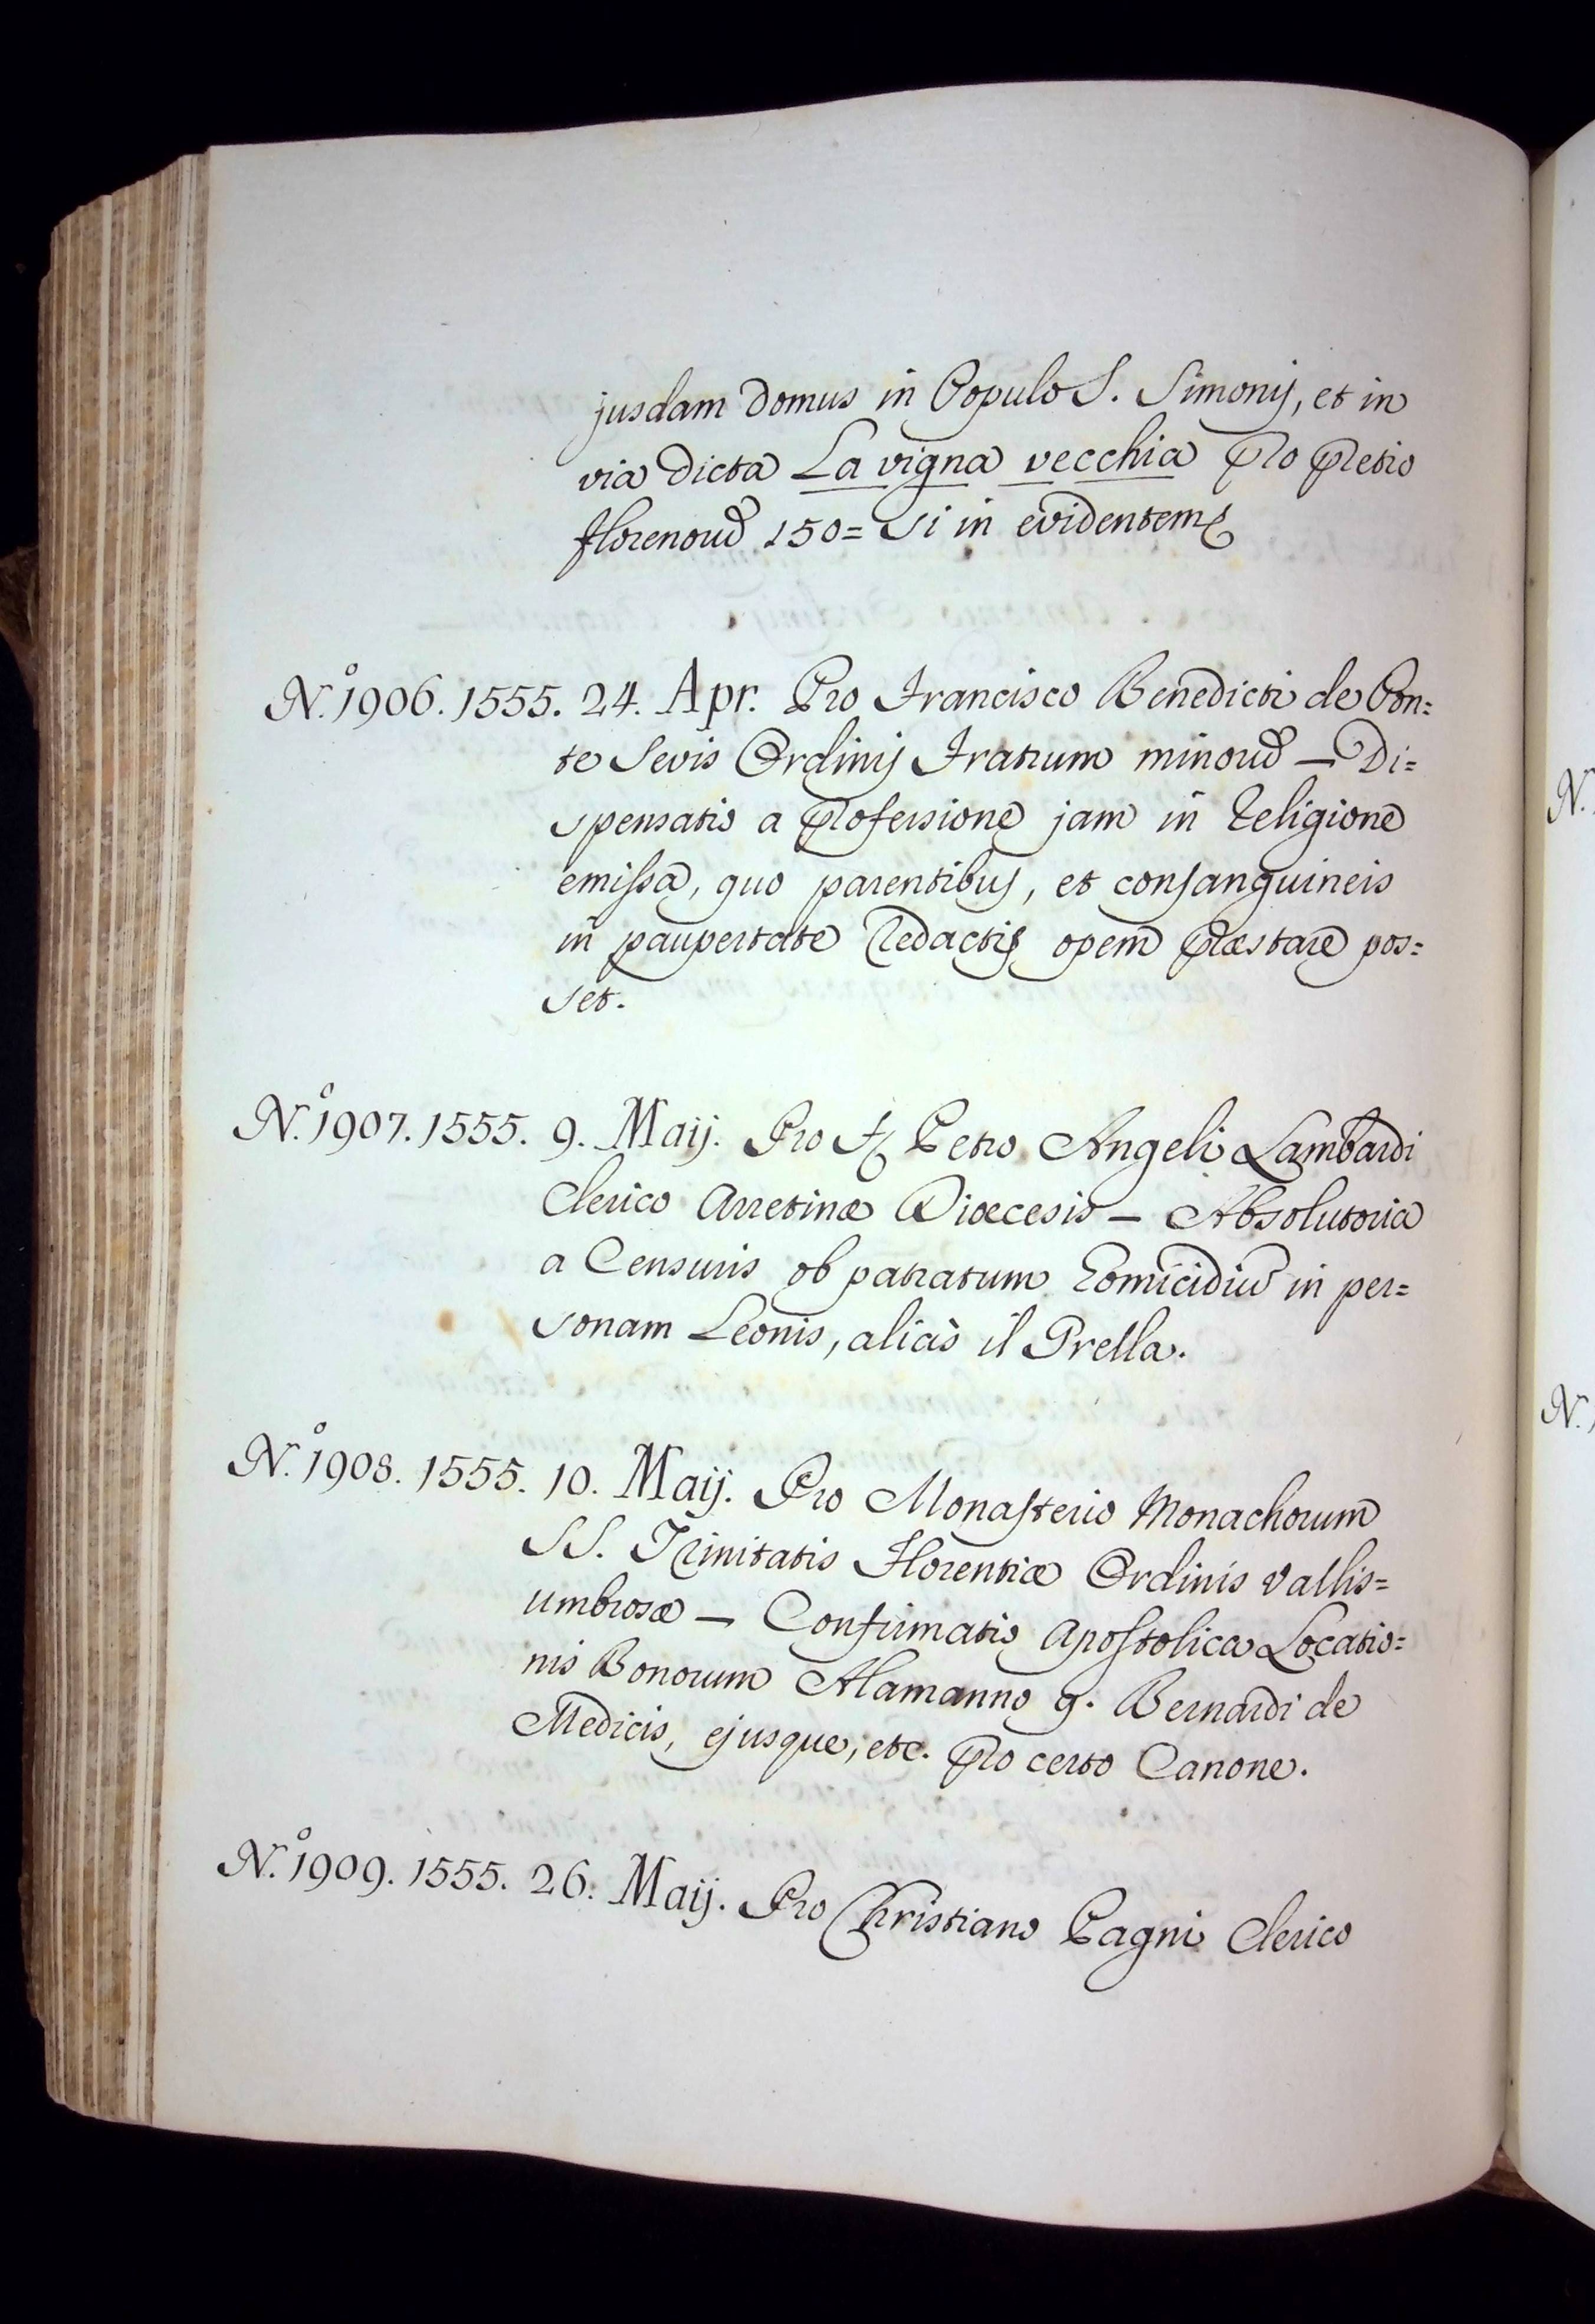 jusdam domus in Populo S. Simonij, et in
via dicta La vigna vecchia pro pretio
florenoru 150= si in evidentem
N.º 1906. 1555. 24. Apr. Pro Francisco Benedicti de Pon=
te Sevis Ordinis Fratrum minoru — Di=
spensatio a professione jam in Religione
emissa, quo parentibus, et consanguineis
in paupertate redactis opem præstare pos=
set.
N.º 1907. 1555. 9. Maij. Pro Petro Angeli Lambardi
Clerico Arretinæ Diœcesis — Absolutoria
a Censuris ob patratum Homicidiu in per=
sonam Leonis, aliàs il Prella.
N.º 1908. 1555. 10. Maij. Pro Monasterio Monachorum
SS. Trinitatis Florentiæ Ordinis Vallis=
umbrosæ — Confirmatio Apostolica Locatio=
nis Bonorum Alamanno q. Bernardi de
Medicis, ejusque, etc. pro certo Canone.
N.º 1909. 1555. 26. Maij. Pro Christiano Pagni Clerico
N.
N.